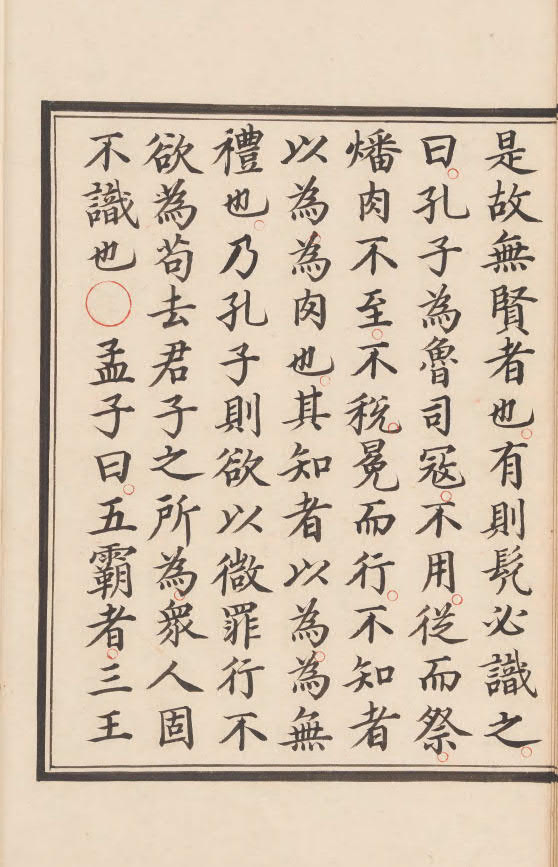 是故無賢者也有則髠必識之
曰孔子為魯司冦不用從而祭
燔肉不至不稅冕而行不知者
以為為肉也其知者以為為無
禮也乃孔子則欲以微罪行不
欲為苟去君子之所為衆人固
不識也○孟子曰五霸者三王